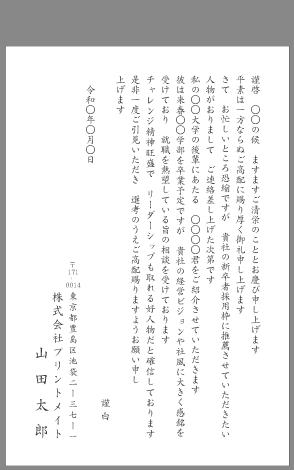 謹啓　〇〇の候　ますますご清栄のこととお慶び申し上げます
平素は一方ならぬご高配に賜り厚く御礼申し上げます
さて　お忙しいところ恐縮ですが　貴社の新卒者採用枠に推薦させていただきたい
人物がおりまして　ご連絡差し上げた次第です
私の〇〇大学の後輩にあたる　〇〇〇〇君をご紹介させていただきます
彼は来春〇〇学部を卒業予定ですが　貴社の経営ビジョンや社風に大きく感銘を
受けており　就職を熱望している旨の相談を受けております
チャレンジ精神旺盛で　リーダーシップも取れる好人物だと確信しております
是非一度ご引見いただき　選考のうえご高配賜りますようお願い申し
上げます
謹白
令和〇年〇月〇日
〒171-0014
東京都豊島区池袋二ー三七ー一
株式会社プリントメイト
山田太郎